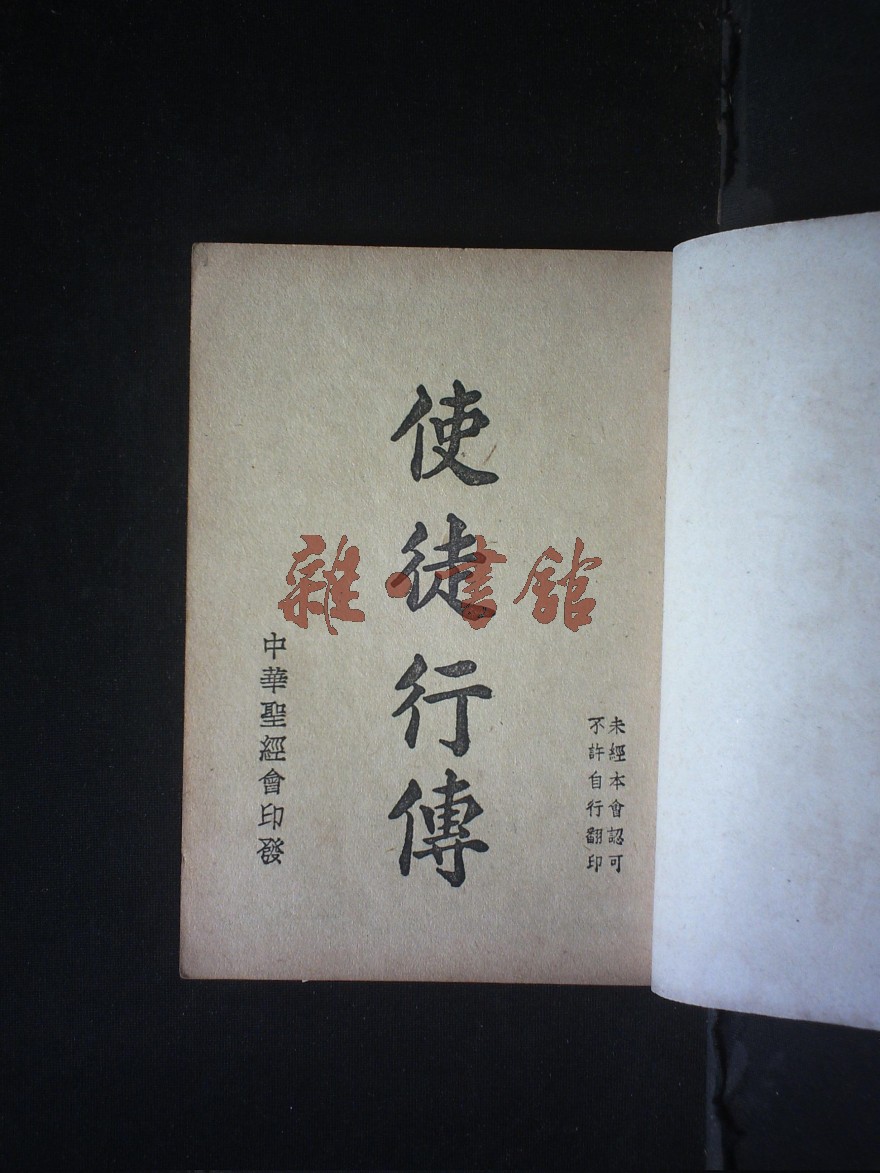 未經本會認可
不許自行翻印
使徒行傳
中華聖經會印發
雜·書館